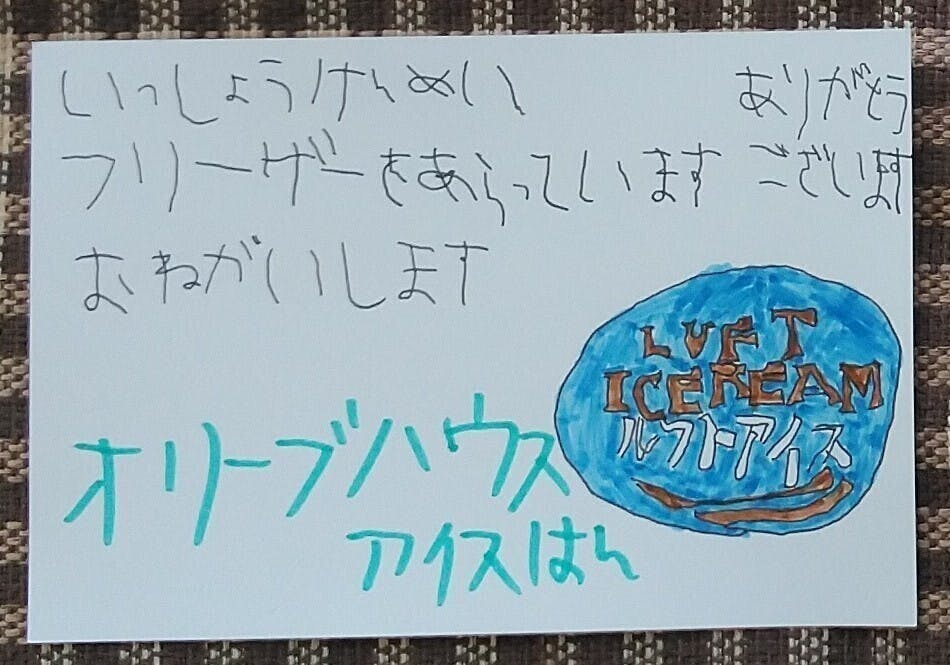 いっしょうけんめい
フリーザーをあらっています
おねがいします
ありがとう
ございます
LUFT
ICEREAM
ルフトアイス
オリーブハウス
アイスはん